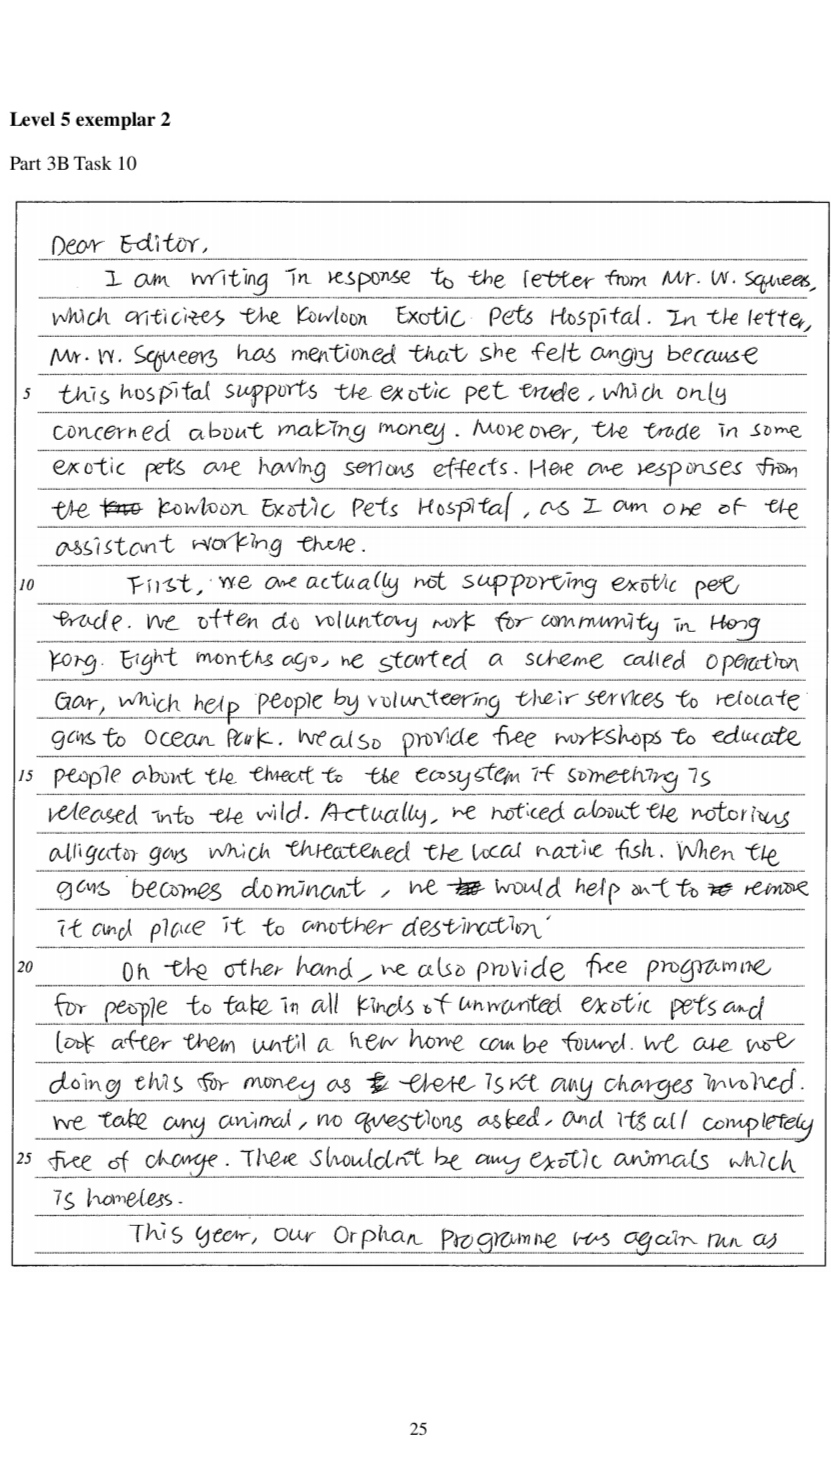 Level 5 exemplar 2
Part 3B Task 10
Dear Editor,
I am writing in response to the letter from Mr. W. Squeers,
which criticizes the Kowloon Exotic Pets Hospital. In the letter,
Mr. W. Squeers has mentioned that she felt angry because
5 this hospital supports the exotic pet trade, which only
concerned about making money. Moreover, the trade in some
exotic pets are having serious effects. Here are responses from
the Kowloon Exotic Pets Hospital, as I am one of the
assistant working there.
10 First, we are actually not supporting exotic pet
trade. We often do voluntary work for community in Hong
Kong. Eight months ago, we started a scheme called Operation
Gar, which help people by volunteering their services to relocate
gars to Ocean Park. We also provide free workshops to educate
15 people about the threat to the ecosystem if something is
released into the wild. Actually, we noticed about the notorious
alligator gars which threatened the local native fish. When the
gars becomes dominant, we would help out to remove
it and place it to another destination.
20 On the other hand, we also provide free programme
for people to take in all kinds of unwanted exotic pets and
look after them until a new home can be found. We are not
doing this for money as there isn't any charges involved.
We take any animal, no questions asked, and it's all completely
25 free of charge. There shouldn't be any exotic animals which
is homeless.
This year, our Orphan Programme was again run as
25